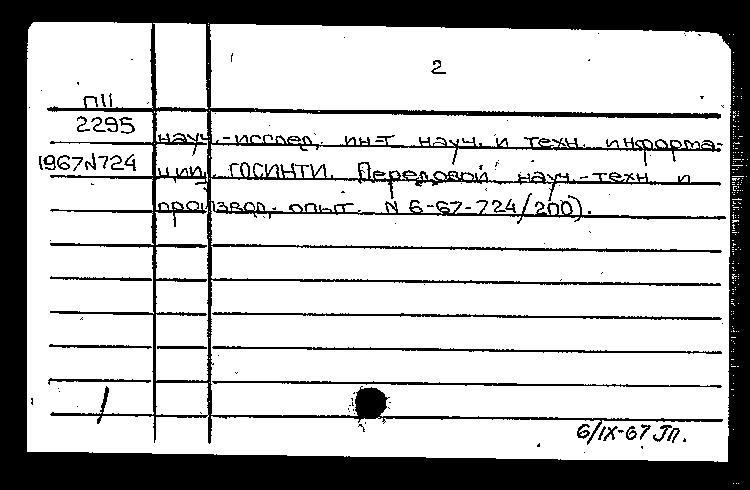 2
П11
2295
науч.-исслед. ин-т науч. и техн. информа-
1967N724
ции. ГОСИНТИ. Передовой науч.-техн. и
производ. опыт. N 6-67-724/200).
6/IX-67